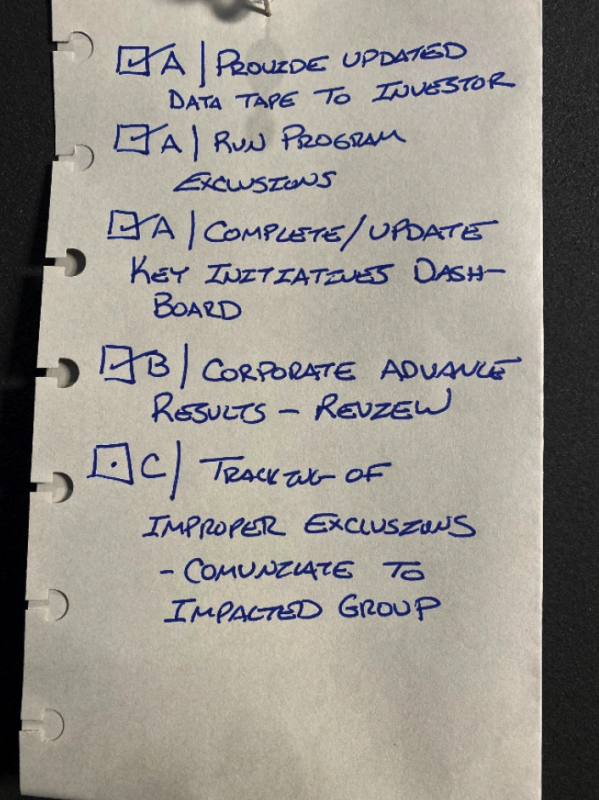 ☑ A | PROVIDE UPDATED
DATA TAPE TO INVESTOR
☑ A | RUN PROGRAM
EXCLUSIONS
☑ A | COMPLETE/UPDATE
KEY INITIATIVES DASH-
BOARD
☑ B | CORPORATE ADVANCE
RESULTS - REVIEW
⊡ C | TRACKING OF
IMPROPER EXCLUSIONS
- COMUNICATE TO
IMPACTED GROUP